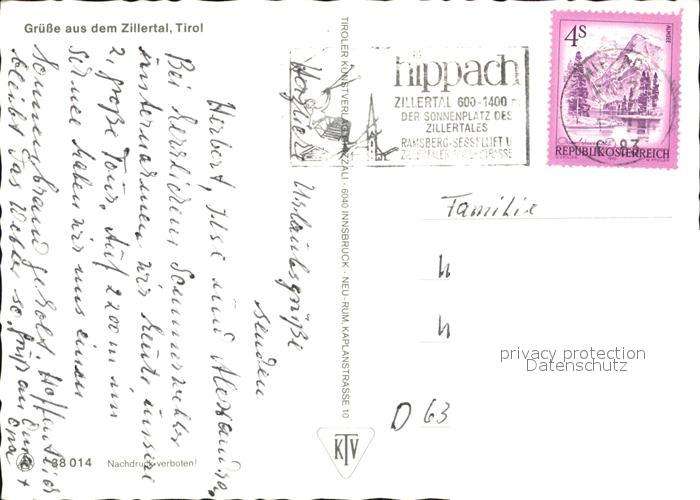 Grüße aus dem Zillertal, Tirol
Herbert, Ilse und Alexandra,
Bei herrlichem Sommerwetter
unternahmen wir heute unsere
2. große Tour. Auf 2200 m im
Schnee haben wir uns einen
Sonnenbrand geholt. Hoffentlich
bleibt das Wetter so.
Herzliche Urlaubsgrüße
senden
88 014 Nachdruck verboten!
TIROLER KUNSTVERLAG · 6040 INNSBRUCK - NEU-RUM, KAPLANSTRASSE 10
KTV
hippach
ZILLERTAL 600-1400 m
DER SONNENPLATZ DES
ZILLERTALES
RAMSBERG-SESSELLIFT U
4S
ALMSEE
REPUBLIK ÖSTERREICH
83
Familie
D 63
privacy protection
Datenschutz